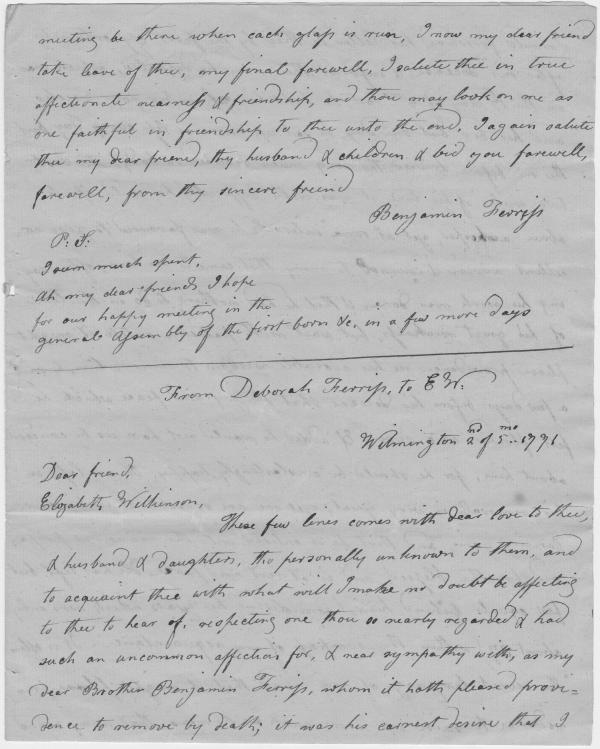 meeting be there when each glass is run, I now my dear friend
take leave of thee, my final farewell, I salute thee in true
affectionate nearness & friendship, and thou may look on me as
one faithful in friendship to thee unto the end. I again salute
thee my dear friend, thy husband & children & bid you farewell,
farewell, from thy sincere friend
Benjamin Ferriss
P. S:
I am much spent,
Ah my dear friends I hope
for our happy meeting in the
general Assembly of the first born &c. in a few more days
From Deborah Ferriss, to E W.
Wilmington 2nd of 5mo.. 1791
Dear friend,
Elizabeth Wilkinson,
These few lines comes with dear love to thee,
& husband & daughters, tho personally unknown to them, and
to acquaint thee with what will I make no doubt be affecting
to thee to hear of, respecting one thou so nearly regarded & had
such an uncommon affection for, & near sympathy with, as my
dear Brother Benjamin Ferriss, whom it hath pleased provi=
dence to remove by death; it was his earnest desire that I